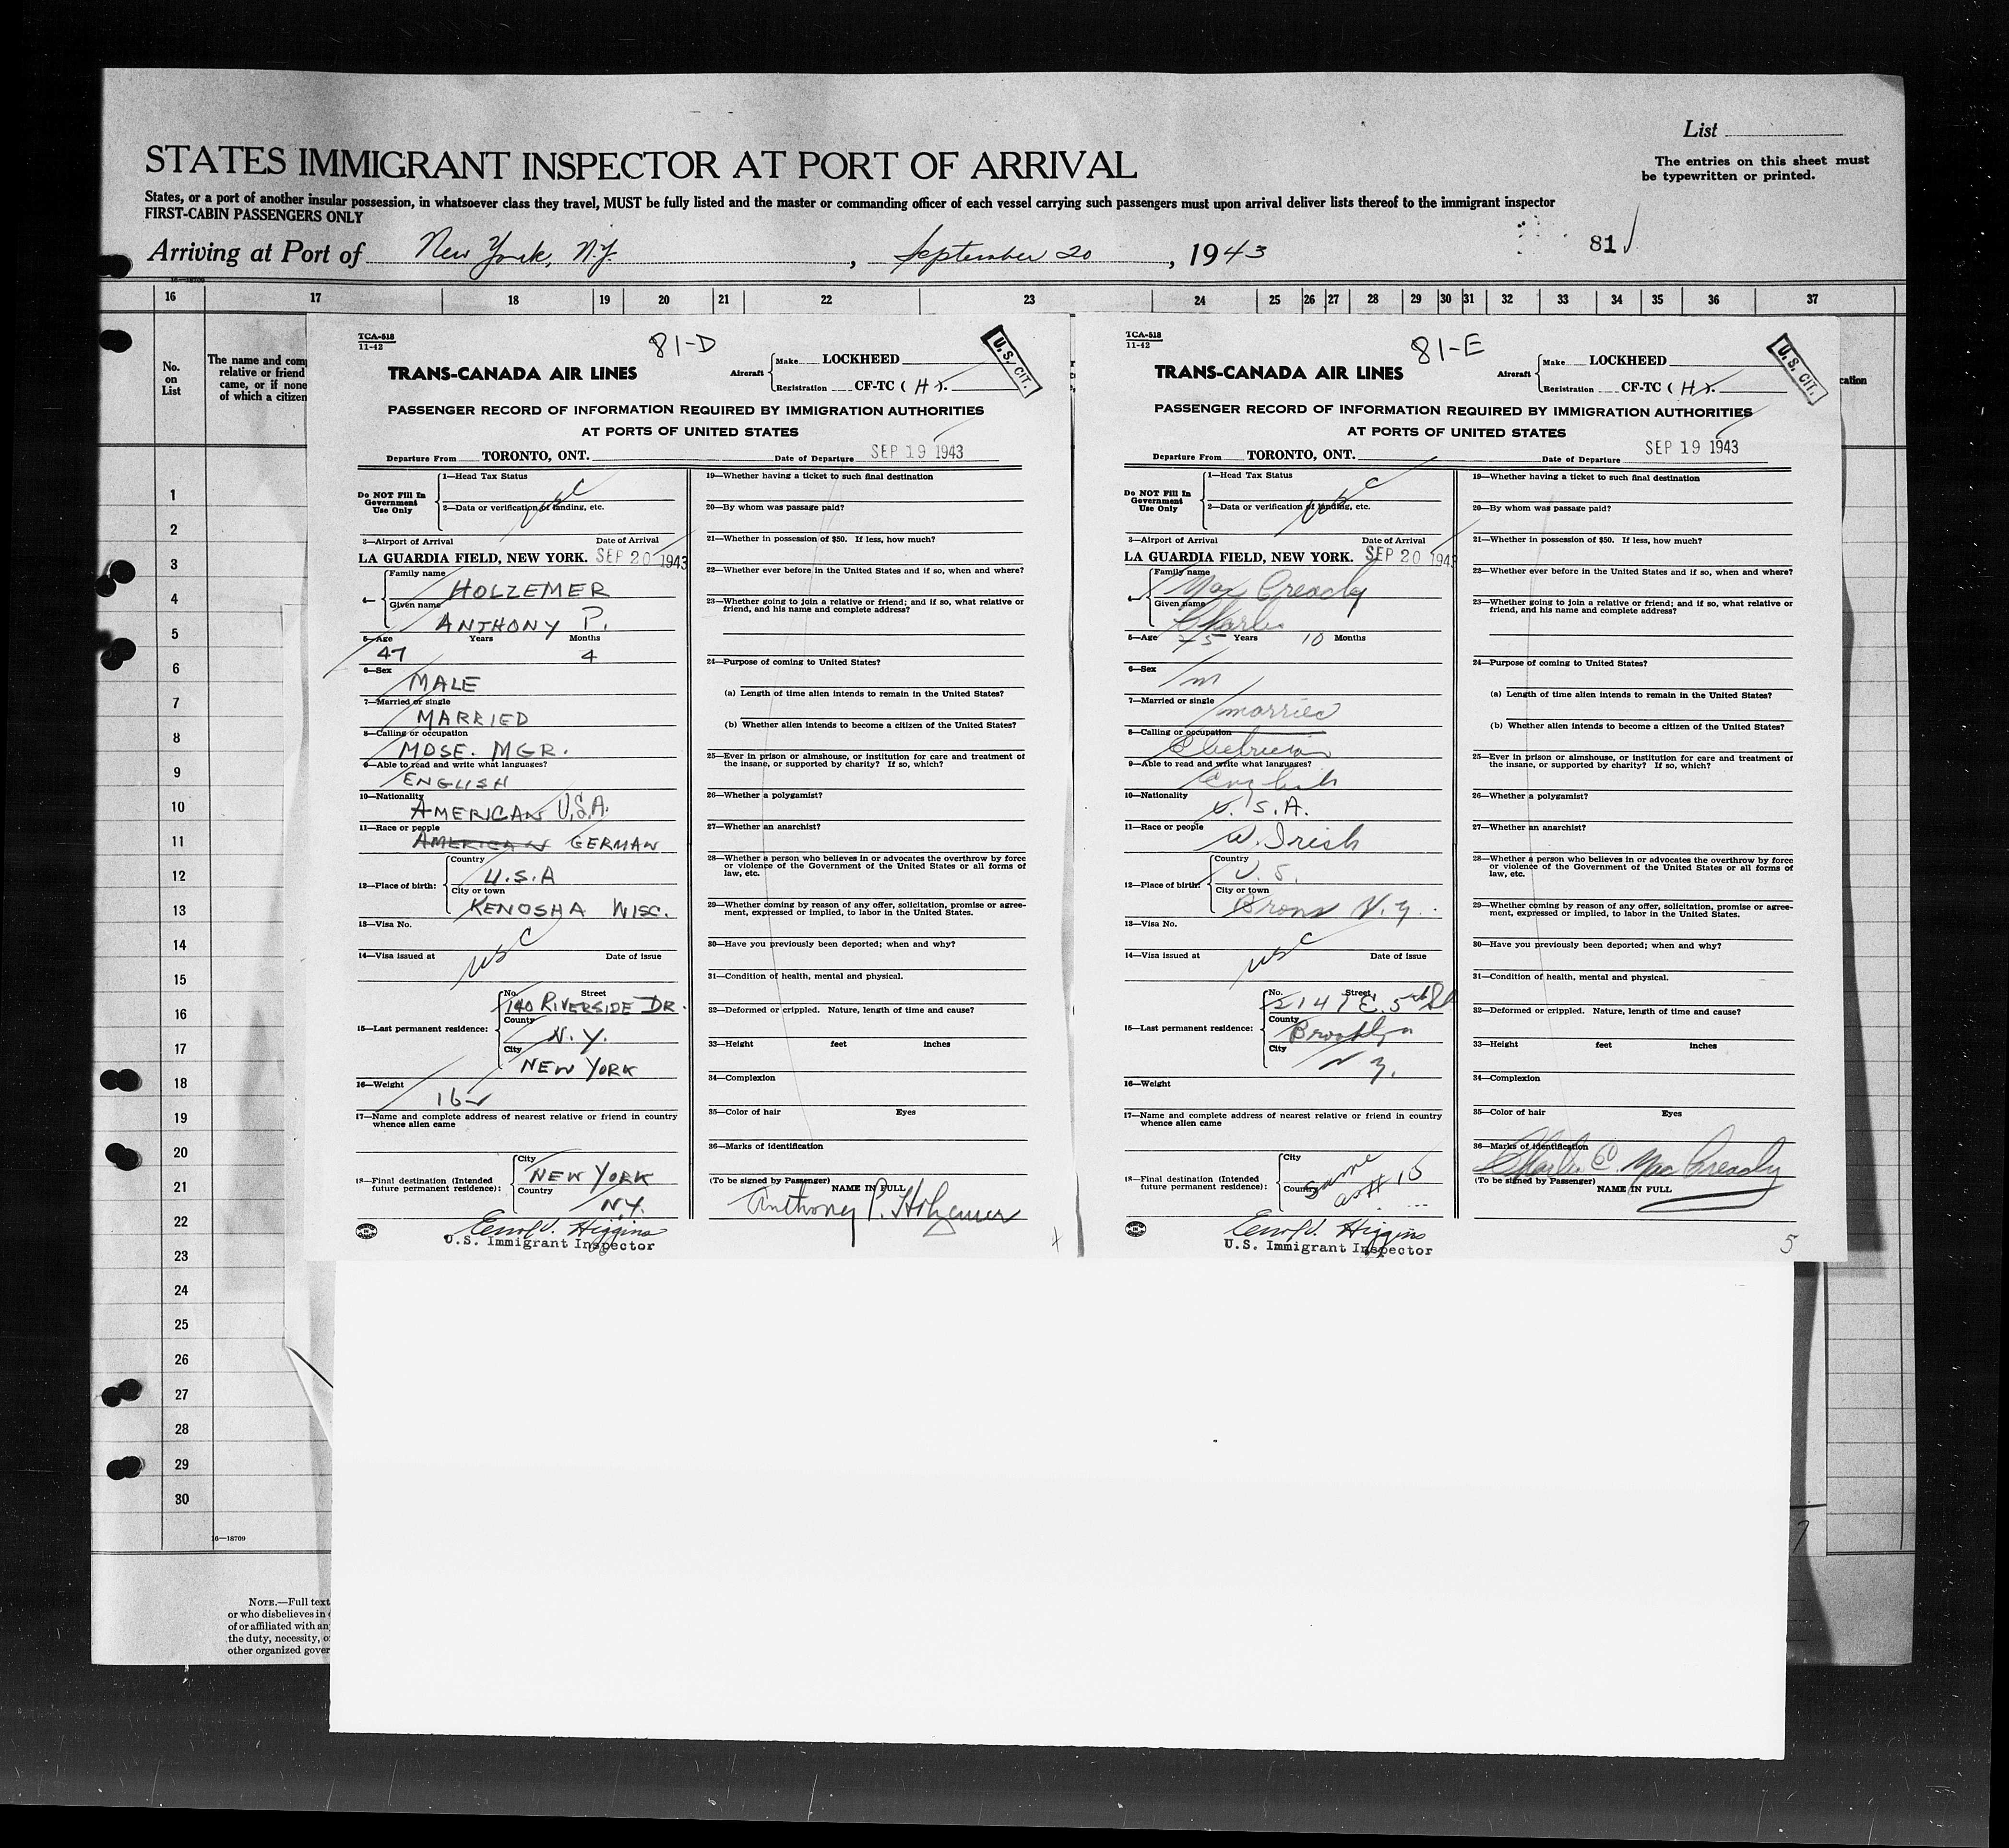 List
STATES IMMIGRANT INSPECTOR AT PORT OF ARRIVAL
The entries on this sheet must
be typewritten or printed.
States, or a port of another insular possession, in whatsoever class they travel, MUST be fully listed and the master or commanding officer of each vessel carrying such passengers must upon arrival deliver lists thereof to the immigrant inspector
FIRST-CABIN PASSENGERS ONLY
Arriving at Port of New York, N.Y., September 20, 1943
81
16 17 18 19 20 21 22 23 24 25 26 27 28 29 30 31 32 33 34 35 36 37
No.
on
List
The name and com
relative or friend
came, or if none
of which a citizen
1
2
3
4
5
6
7
8
9
10
11
12
13
14
15
16
17
18
19
20
21
22
23
24
25
26
27
28
29
30
16—18709
NOTE.—Full text
or who disbelieves in
of or affiliated with an
the duty, necessity, o
other organized gover
TCA-518
11-42
81-D
U.S. CIT.
TRANS-CANADA AIR LINES
Aircraft
Make LOCKHEED
Registration CF-TC ( H ).
PASSENGER RECORD OF INFORMATION REQUIRED BY IMMIGRATION AUTHORITIES
AT PORTS OF UNITED STATES
Departure From TORONTO, ONT. Date of Departure SEP 19 1943
Do NOT Fill In
Government
Use Only
1—Head Tax Status
usc
2—Data or verification of landing, etc.
3—Airport of Arrival Date of Arrival
LA GUARDIA FIELD, NEW YORK. SEP 20 1943
4—
Family name
HOLZEMER
Given name
ANTHONY P.
5—Age Years Months
47 4
6—Sex
MALE
7—Married or single
MARRIED
8—Calling or occupation
MDSE. MGR.
9—Able to read and write what languages?
ENGLISH
10—Nationality
AMERICAN U.S.A.
11—Race or people
AMERICAN GERMAN
12—Place of birth:
Country
U.S.A
City or town
KENOSHA WISC.
13—Visa No.
usc
14—Visa issued at Date of issue
15—Last permanent residence:
No. Street
140 RIVERSIDE DR.
County
N.Y.
City
NEW YORK
16—Weight
17—Name and complete address of nearest relative or friend in country
whence alien came
18—Final destination (Intended
future permanent residence):
City
NEW YORK
Country
N.Y.
Higgins
U.S. Immigrant Inspector
19—Whether having a ticket to such final destination
20—By whom was passage paid?
21—Whether in possession of $50. If less, how much?
22—Whether ever before in the United States and if so, when and where?
23—Whether going to join a relative or friend; and if so, what relative or
friend, and his name and complete address?
24—Purpose of coming to United States?
(a) Length of time alien intends to remain in the United States?
(b) Whether alien intends to become a citizen of the United States?
25—Ever in prison or almshouse, or institution for care and treatment of
the insane, or supported by charity? If so, which?
26—Whether a polygamist?
27—Whether an anarchist?
28—Whether a person who believes in or advocates the overthrow by force
or violence of the Government of the United States or all forms of
law, etc.
29—Whether coming by reason of any offer, solicitation, promise or agree-
ment, expressed or implied, to labor in the United States.
30—Have you previously been deported; when and why?
31—Condition of health, mental and physical.
32—Deformed or crippled. Nature, length of time and cause?
33—Height feet inches
34—Complexion
35—Color of hair Eyes
36—Marks of identification
(To be signed by Passenger) NAME IN FULL
Anthony P. Holzemer
TCA-518
11-42
81-E
U.S. CIT.
TRANS-CANADA AIR LINES
Aircraft
Make LOCKHEED
Registration CF-TC ( H ).
cation
PASSENGER RECORD OF INFORMATION REQUIRED BY IMMIGRATION AUTHORITIES
AT PORTS OF UNITED STATES
Departure From TORONTO, ONT. Date of Departure SEP 19 1943
Do NOT Fill In
Government
Use Only
1—Head Tax Status
usc
2—Data or verification of landing, etc.
3—Airport of Arrival Date of Arrival
LA GUARDIA FIELD, NEW YORK. SEP 20 1943
4—
Family name
Mac Cready
Given name
Charles
5—Age Years 10 Months
6—Sex
m
7—Married or single
married
8—Calling or occupation
Electrician
9—Able to read and write what languages?
English
10—Nationality
U.S.A.
11—Race or people
W. Irish
12—Place of birth:
Country
U.S.
City or town
Bronx N.Y.
13—Visa No.
usc
14—Visa issued at Date of issue
15—Last permanent residence:
No. Street
2147 E. 5th St
County
Brooklyn
City
N.Y.
16—Weight
17—Name and complete address of nearest relative or friend in country
whence alien came
18—Final destination (Intended
future permanent residence):
City
same
Country
as # 15
Higgins
U.S. Immigrant Inspector
19—Whether having a ticket to such final destination
20—By whom was passage paid?
21—Whether in possession of $50. If less, how much?
22—Whether ever before in the United States and if so, when and where?
23—Whether going to join a relative or friend; and if so, what relative or
friend, and his name and complete address?
24—Purpose of coming to United States?
(a) Length of time alien intends to remain in the United States?
(b) Whether alien intends to become a citizen of the United States?
25—Ever in prison or almshouse, or institution for care and treatment of
the insane, or supported by charity? If so, which?
26—Whether a polygamist?
27—Whether an anarchist?
28—Whether a person who believes in or advocates the overthrow by force
or violence of the Government of the United States or all forms of
law, etc.
29—Whether coming by reason of any offer, solicitation, promise or agree-
ment, expressed or implied, to labor in the United States.
30—Have you previously been deported; when and why?
31—Condition of health, mental and physical.
32—Deformed or crippled. Nature, length of time and cause?
33—Height feet inches
34—Complexion
35—Color of hair Eyes
36—Marks of identification
Charles E. Mac Cready
(To be signed by Passenger) NAME IN FULL
5